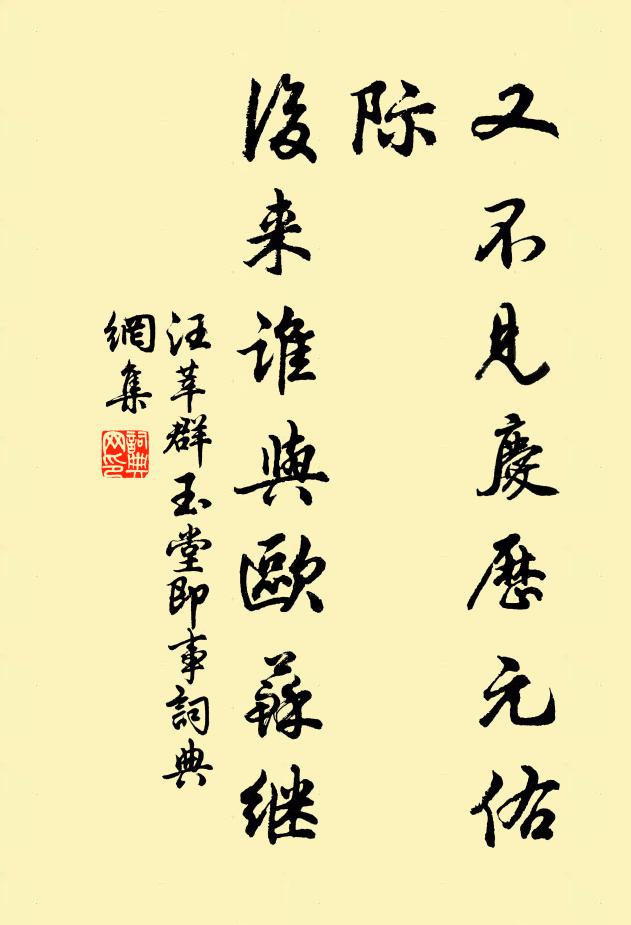 又不見慶歷元佑
际
後来誰與歐蘇继
汪莘群玉堂即事詞典
網集
詞典網印